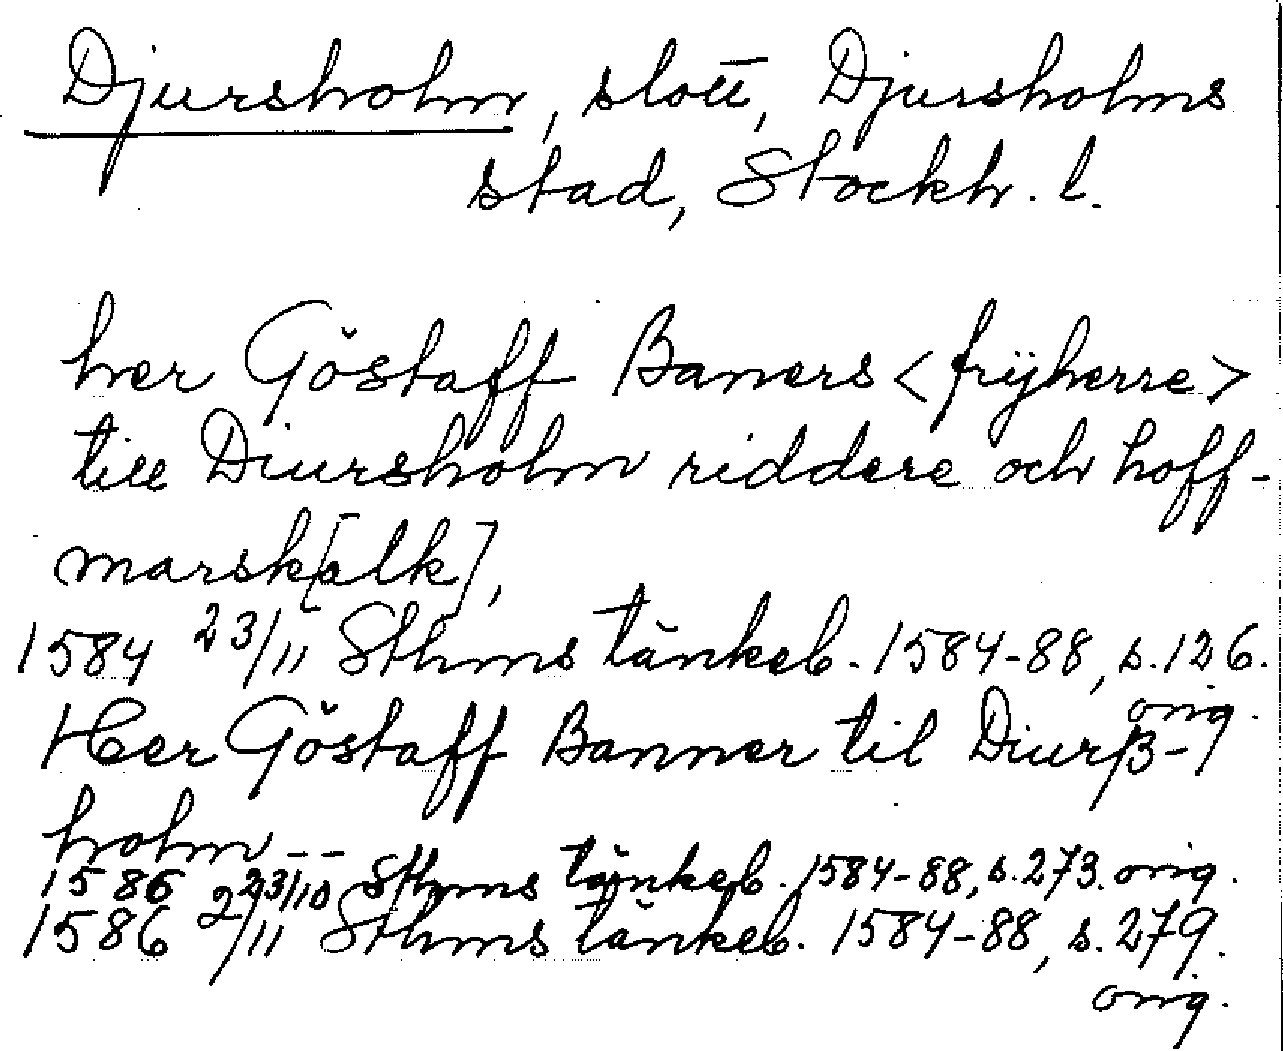 Djursholm, slott, Djursholms
stad, Stockh. l.
her Göstaff Baners <frÿherre>
till Diursholm riddere och hoff-
marsk[alk],
1584 23/11 Sthms tänkeb. 1584-88, s. 126.
orig.
Her Göstaff Banner til Diurß-
holm --
1586 23/10 Sthms tänkeb. 1584-88, s. 273. orig.
1586 2/11 Sthms tänkeb. 1584-88, s. 279.
orig.